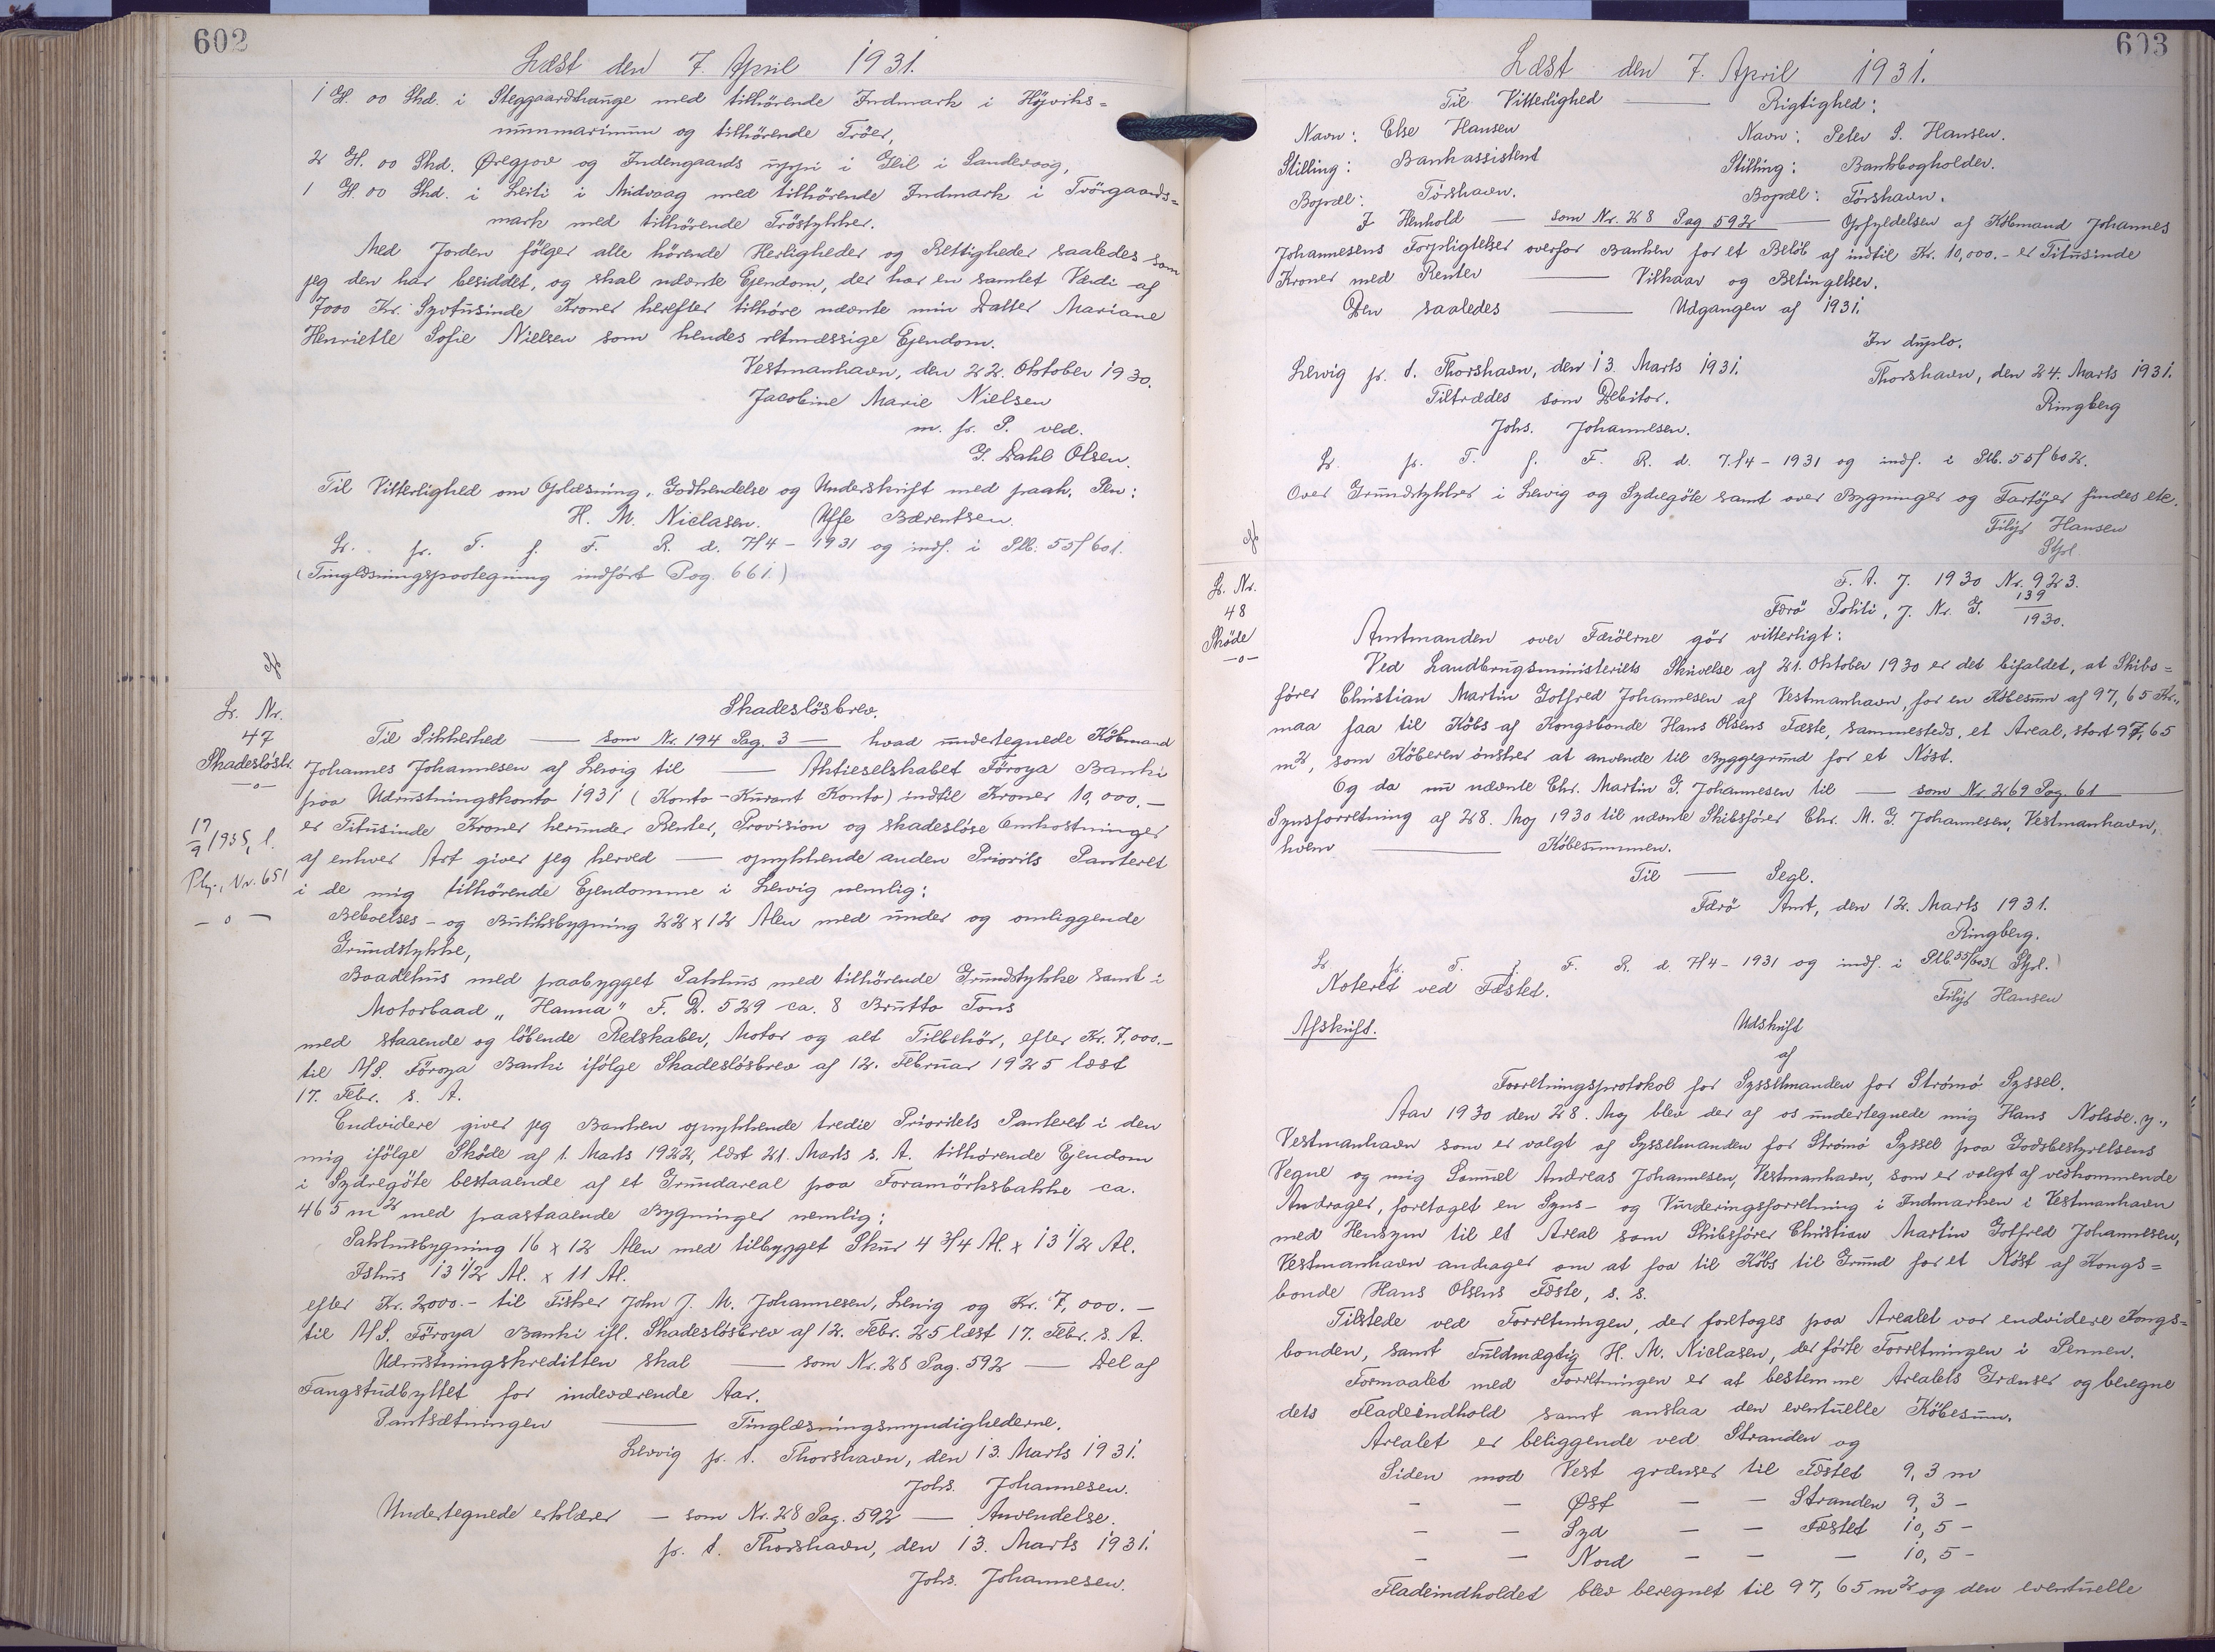 602
Læst den 7. April 1931.
1 G. 00 Skd. i Steggaardshauge med tilhörende Indmark i Höjviks=
nummarimum og tilhörende Tröer,
2 G. 00 Skd. Øregjov og Indengaards uppi i Geil i Sandevaag,
1 G. 00 Skd. i Leiti i Midvaag med tilhörende Indmark i Tvörgaards=
mark med tilhörende Tröstykker.
Med Jorden fölger alle hörende Herligheder og Rettigheder saaledes som
jeg den har besiddet, og skal nævnte Ejendom, der har en samlet Værdi af
7000 Kr. Syvtusinde Kroner herefter tilhöre nævnte min Datter Mariane
Henriette Sofie Nielsen som hendes retmæssige Ejendom.
Vestmanhavn, den 22. Oktober 1930.
Jacobine Marie Nielsen
m. f. P. ved.
G. Dahl Olsen.
Til Vitterlighed om Oplæsning, Godkendelse og Underskrift med paah. Pen:
H. M. Niclasen. Uffe Bærentsen.
Lr. fr. T. f. F. R. d. 7/4 - 1931 og indf. i Plb. 55f 601.
(Tinglæsningspaategning indfört Pag. 661.)
Lr. Nr.
47
Skadeslösbr.
—o—
Skadeslösbrev.
Til Sikkerhed — som Nr. 194 Pag. 3 — hvad undertegnede Købmand
Johannes Johannesen af Lervig til — Aktieselskabet Föroya Banki
paa Udrustningskonto 1931 (Konto-Kurant Konto) indtil Kroner 10,000.—
17/9 1935, l.
er Titusinde Kroner herunder Renter, Provision og skadeslöse Omkostninger
af enhver Art giver jeg herved — oprykkende anden Priorits Panteret
Plj., Nr. 651
i de mig tilhörende Ejendomme i Lervig nemlig:
— o —
Beboelses- og Butiksbygning 22 x 12 Alen med under og omliggende
Grundstykke,
Baadehus med paabygget Pakhus med tilhörende Grundstykke samt i
Motorbaad „Hanna" F. D. 529 ca. 8 Brutto Tons
med staaende og löbende Redskaber, Motor og alt Tilbehör, efter Kr. 7,000.—
til A/S. Föroya Banki ifölge Skadeslösbrev af 12. Februar 1925 læst
17. Febr. s. A.
Endvidere giver jeg Banken oprykkende tredie Prioritets Panteret i den
mig ifölge Sköde af 1. Marts 1922, læst 21. Marts s. A. tilhörende Ejendom
i Sydregöte bestaaende af et Grundareal paa Foramörksbakke ca.
465 m² med paastaaende Bygninger nemlig:
Pakhusbygning 16 x 12 Alen med tilbygget Skur 4 3/4 Al. x 13 1/2 Al.
Ishus 13 1/2 Al. x 11 Al.
efter Kr. 2000.- til Fisker John J. M. Johannesen, Lervig og Kr. 7,000.—
til A/S. Föroya Banki ifl. Skadeslösbrev af 12. Febr. 25 læst 17. Febr. s. A.
Udrustningskreditten skal — som Nr. 28 Pag. 592 — Del af
Fangstudbyttet for indeværende Aar.
Pantsætningen — Tinglæsningsmyndighederne.
Lervig p. t. Thorshavn, den 13. Marts 1931.
Johs. Johannesen.
Undertegnede erklærer — som Nr. 28 Pag. 592 — Anvendelse.
p. t. Thorshavn, den 13. Marts 1931.
Johs. Johannesen.
603
Læst den 7. April 1931.
Til Vitterlighed — Rigtighed:
Navn: Else Hansen Navn: Peter S. Hansen.
Stilling: Bankassistent Stilling: Bankbogholder.
Bopæl: Tórshavn. Bopæl: Tórshavn.
I Henhold — som Nr. 28 Pag 592 — Opfyldelsen af Købmand Johannes
Johannesens Forpligtelser overfor Banken for et Belöb af indtil Kr. 10,000.- er Titusinde
Kroner med Renter — Vilkaar og Betingelser.
Den saaledes — Udgangen af 1931.
In duplo.
Lervig p. t. Thorshavn, den 13. Marts 1931. Thorshavn, den 24. Marts 1931.
Tiltrædes som Debitor. Ringberg
Johs. Johannesen.
Lr. fr. T. f. F. R. d. 7/4 - 1931 og indf. i Plb. 55f 602.
Over Grundstykker i Lervig og Sydregöte samt over Bygninger og Fartöjer findes etc.
Filip Hansen
Stfl.
Lr. Nr.
48
Sköde
—o—
F. A. J. 1930 Nr. 923.
Færö Politi, J. Nr. G. 139/1930.
Amtmanden over Færöerne gör vitterligt:
Ved Landbrugsministeriets Skrivelse af 21. Oktober 1930 er det bifaldet, at Skibs=
förer Christian Martin Gotfred Johannesen af Vestmanhavn, for en Købesum af 97,65 Kr.,
maa faa til Köbs af Kongsbonde Hans Olsens Fæste, sammesteds, et Areal, stort 97,65
m², som Köberen önsker at anvende til Byggegrund for et Nöst.
Og da nu nævnte Chr. Martin G. Johannesen til — som Nr. 269 Pag 61 —
Synsforretning af 28. Maj 1930 til nævnte Skibsförer Chr. M. G. Johannesen, Vestmanhavn,
hvem — Köbesummen.
Til — Segl.
Færö Amt, den 12. Marts 1931.
Ringberg.
Lr. fr. T. f. F. R. d. 7/4 - 1931 og indf. i Plb. 55/603. Stfl.
Noteret ved Fæstet. Filip Hansen
Afskrift. Udskrift
af
Forretningsprotokol for Sysselmanden for Strömö Syssel.
Aar 1930 den 28. Maj blev der af os undertegnede mig Hans Nolsöe. y.,
Vestmanhavn som er valgt af Sysselmanden for Strömö Syssel paa Godsbestyrelsens
Vegne og mig Samuel Andreas Johannesen, Vestmanhavn, som er valgt af vedkommende
Andrager, foretaget en Syns- og Vurderingsforretning i Indmarken i Vestmanhavn
med Hensyn til et Areal som Skibsförer Christian Martin Gotfred Johannesen,
Vestmanhavn andrager om at faa til Köbs til Grund for et Nöst af Kongs=
bonde Hans Olsens Fæste, s. s.
Tilstede ved Forretningen, der foretoges paa Arealet var endvidere Kongs=
bonden, samt Fuldmægtig H. M. Niclasen, der förte Forretningen i Pennen.
Formaalet med Forretningen er at bestemme Arealets Grænser og beregne
dets Fladeindhold samt anslaa den eventuelle Köbesum.
Arealet er beliggende ved Stranden og
Siden mod Vest grænser til Fæstet 9,3 m
- - Øst - - Stranden 9,3 -
- - Syd - - Fæstet 10,5 -
- - Nord - - - 10,5 -
Fladeindholdet blev beregnet til 97,65 m² og den eventuelle